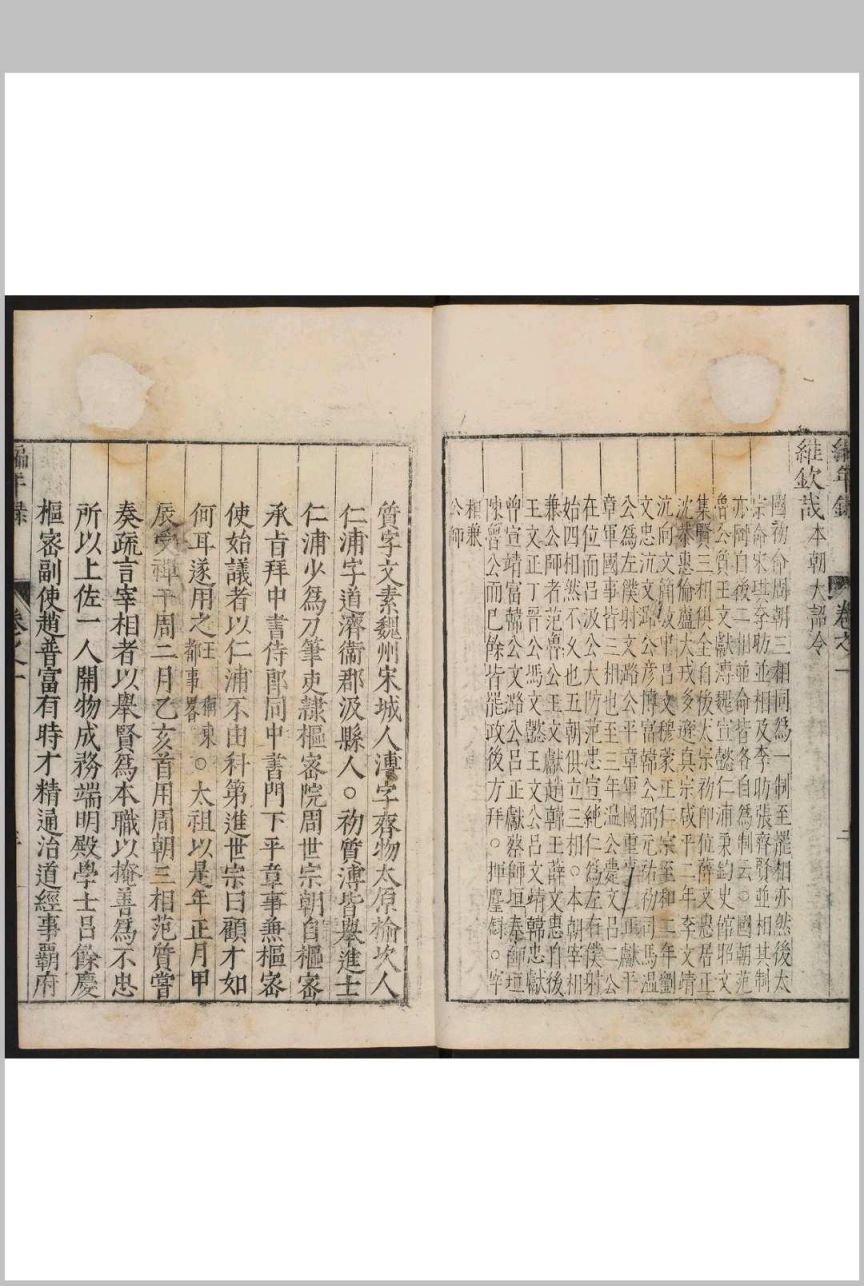 編年錄
卷之一
維欽哉本朝大詔令
國初命周朝三相同爲一制至罷相亦然後太
宗命宋琪李昉並相及李昉張齊賢並相其制
亦同自後二相並命皆各自爲制云○國朝范
魯公質王文獻溥魏宣懿仁浦秉鈞史館昭文
集賢三相俱全自後太宗初卽位薛文惠居正
沈恭惠倫盧大戎多遜真宗咸平二年李文靖
沆向文簡敏中呂文穆蒙正仁宗至和二年劉
文忠沆文潞公彥博富韓公弼元祐初司馬温
公爲左僕射文潞公平章軍國重事呂正獻平
章軍國事皆三相也至三年温公薨文呂二公
在位而呂汲公大防范忠宣純仁爲左右僕射
始四相然不久也五朝俱立三相○本朝宰相
兼公師者范魯公王文獻趙韓王薛文惠自後
王文正丁晉公馮文懿王文公呂文靖韓忠獻
曾宣靖富韓公文潞公呂正獻蔡師垣秦師垣
陳魯公而已餘皆罷政後方拜○揮麈錄○宰
相兼
公師
質字文素魏州宋城人溥字齊物太原榆次人
仁浦字道濟衞郡汲縣人○初質溥皆舉進士
仁浦少爲刀筆吏隷樞密院周世宗朝自樞密
承旨拜中書侍郎同中書門下平章事兼樞密
使始議者以仁浦不由科第進世宗曰顧才如
何耳遂用之王稱東都事畧○太祖以是年正月甲
辰受禪于周二月乙亥首用周朝三相范質嘗
奏疏言宰相者以舉賢爲本職以掩善爲不忠
所以上佐一人開物成務端明殿學士呂餘慶
樞密副使趙普富有時才精通治道經事霸府
編年錄
卷之一